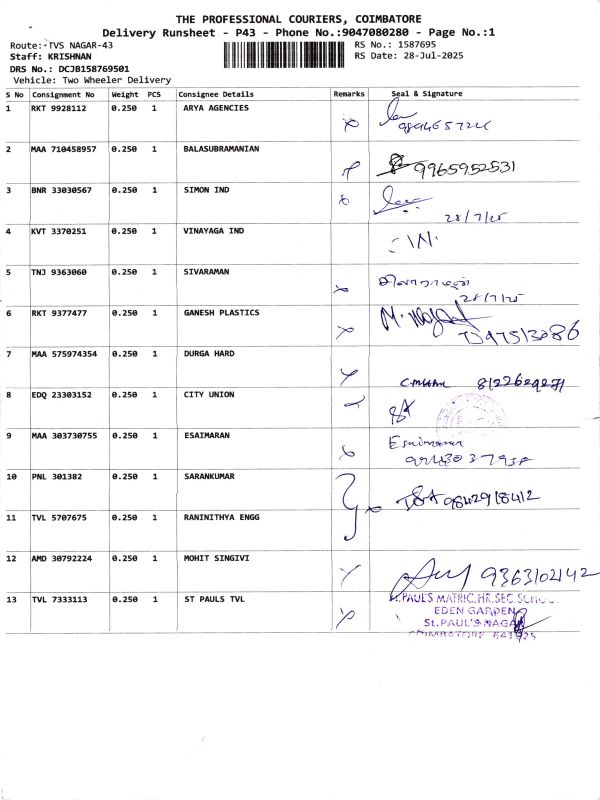 THE PROFESSIONAL COURIERS, COIMBATORE
Delivery Runsheet - P43 - Phone No.:9047080280 - Page No.:1
Route:-TVS NAGAR-43 RS No.: 1587695
Staff: KRISHNAN RS Date: 28-Jul-2025
DRS No.: DCJB158769501
Vehicle: Two Wheeler Delivery
S No Consignment No Weight PCS Consignee Details Remarks Seal & Signature
1 RKT 9928112 0.250 1 ARYA AGENCIES
2 MAA 710458957 0.250 1 BALASUBRAMANIAN
9965952531
3 BNR 33030567 0.250 1 SIMON IND
28/7/25
4 KVT 3370251 0.250 1 VINAYAGA IND
5 TNJ 9363060 0.250 1 SIVARAMAN
28/7/25
6 RKT 9377477 0.250 1 GANESH PLASTICS
7 MAA 575974354 0.250 1 DURGA HARD
8 EDQ 23303152 0.250 1 CITY UNION
9 MAA 303730755 0.250 1 ESAIMARAN
Esaimaran
10 PNL 301382 0.250 1 SARANKUMAR
9842918412
11 TVL 5707675 0.250 1 RANINITHYA ENGG
12 AMD 30792224 0.250 1 MOHIT SINGIVI
9363102142
13 TVL 7333113 0.250 1 ST PAULS TVL
St.PAUL'S MATRIC.HR.SEC.SCHOOL
EDEN GARDEN
St.PAUL'S NAGAR
COIMBATORE 641025